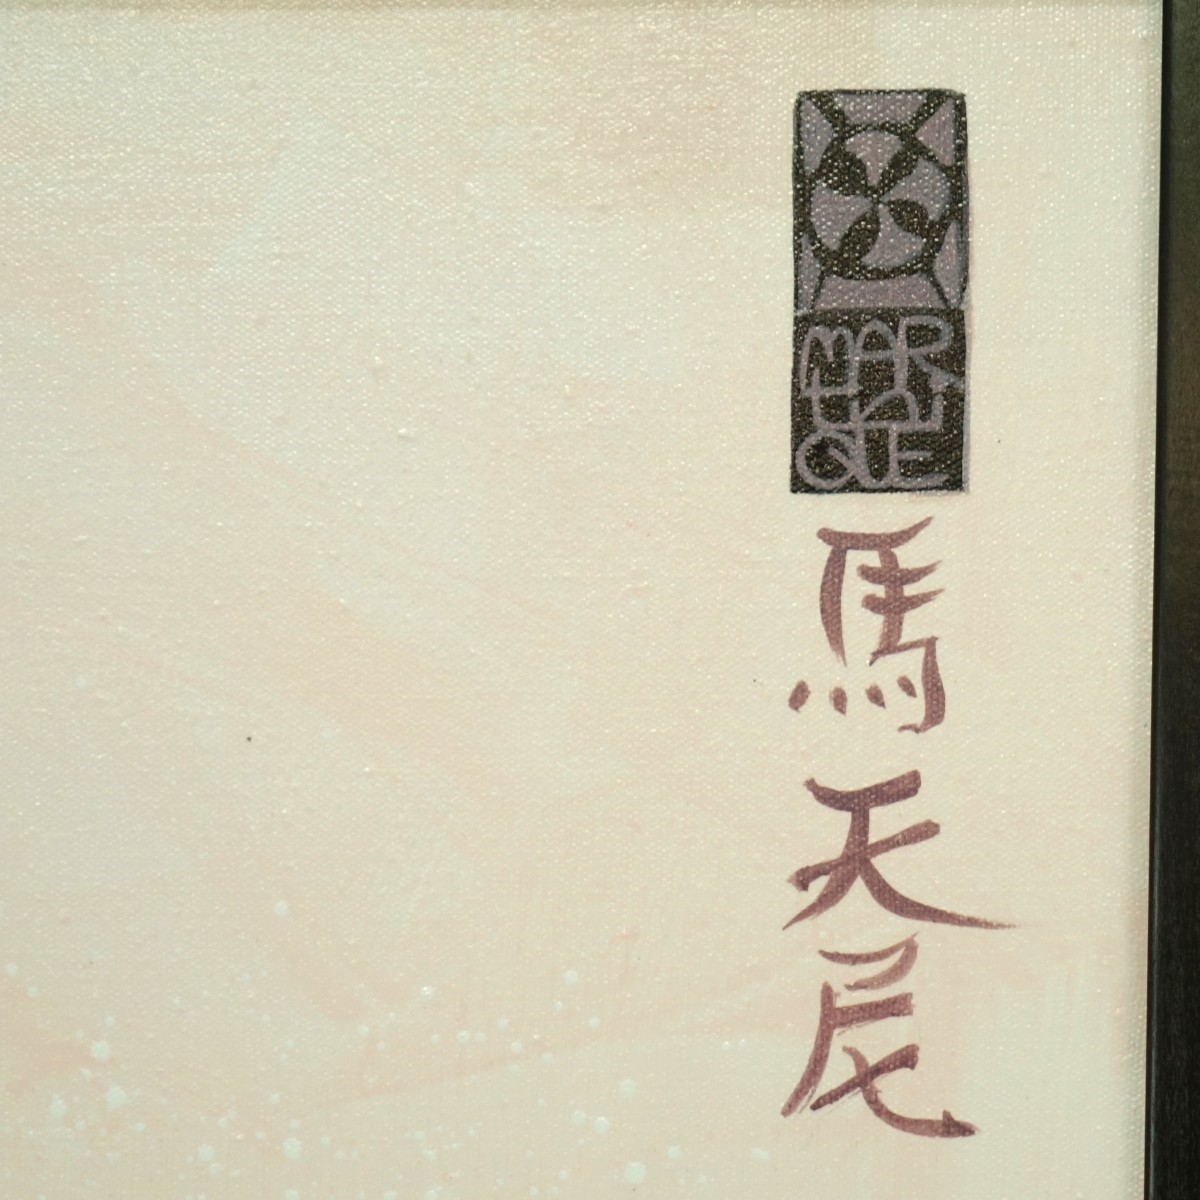 MAR
tini
QUE
馬天尼